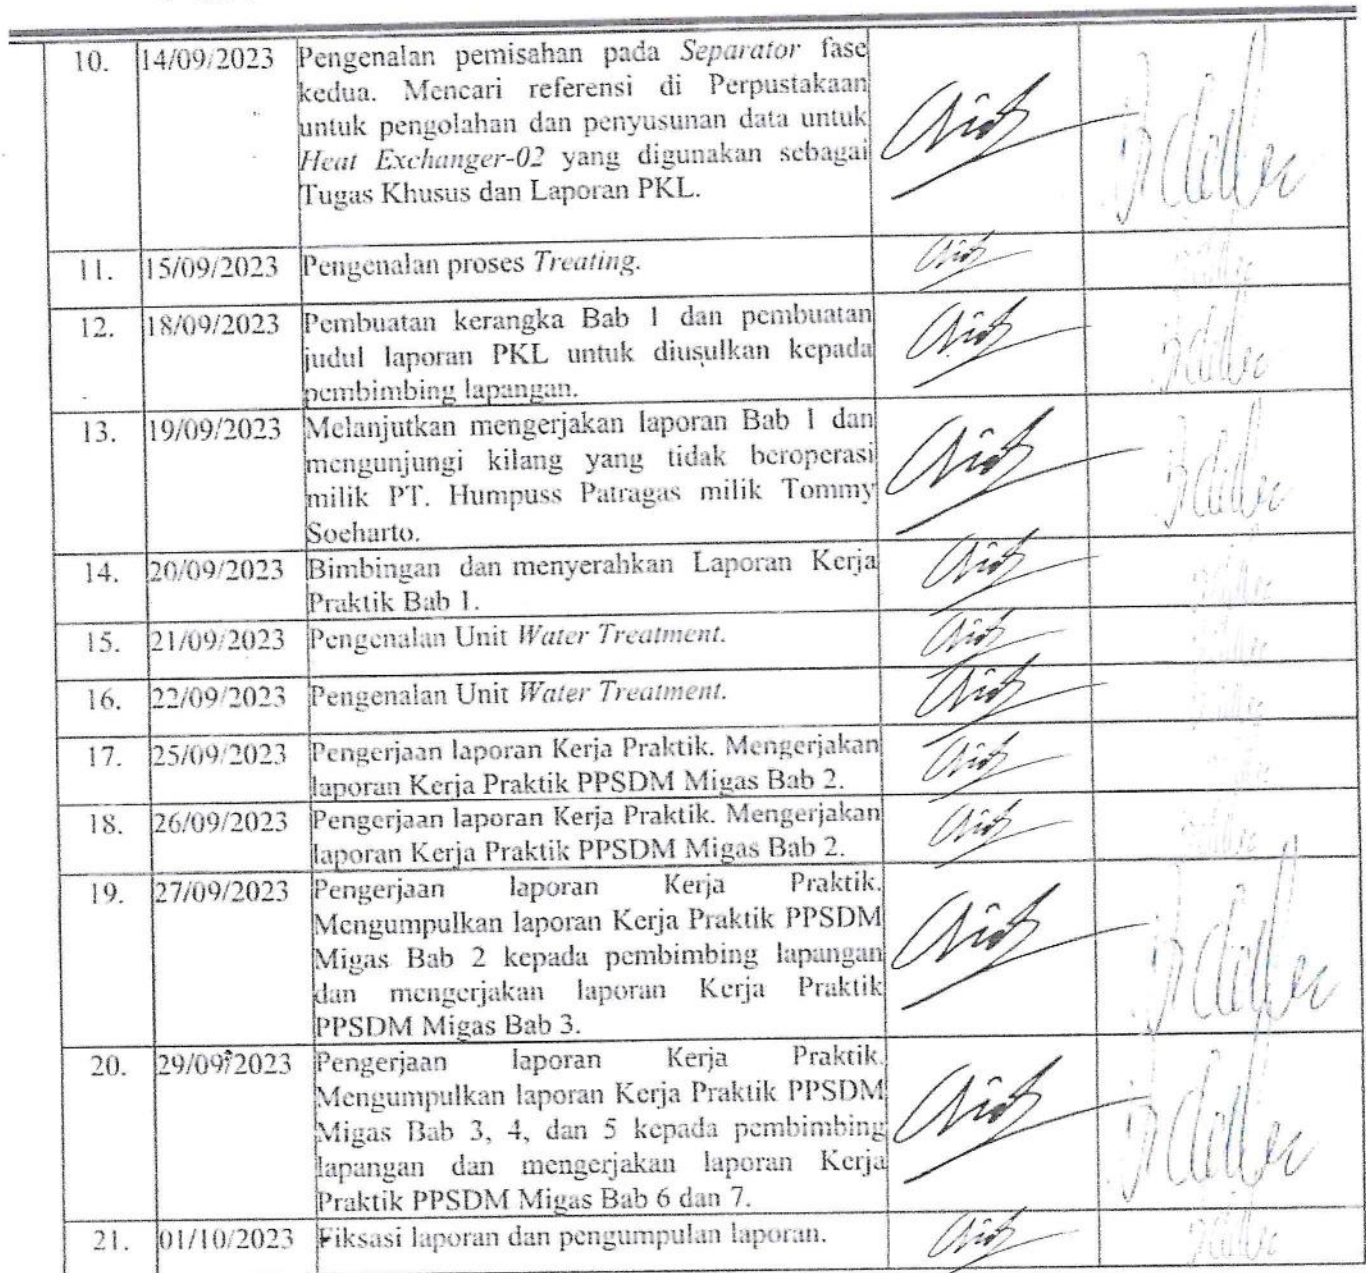 10. 14/09/2023 Pengenalan pemisahan pada Separator fase
kedua. Mencari referensi di Perpustakaan
untuk pengolahan dan penyusunan data untuk
Heat Exchanger-02 yang digunakan sebagai
Tugas Khusus dan Laporan PKL.
11. 15/09/2023 Pengenalan proses Treating.
12. 18/09/2023 Pembuatan kerangka Bab 1 dan pembuatan
judul laporan PKL untuk diusulkan kepada
pembimbing lapangan.
13. 19/09/2023 Melanjutkan mengerjakan laporan Bab 1 dan
mengunjungi kilang yang tidak beroperasi
milik PT. Humpuss Patragas milik Tommy
Soeharto.
14. 20/09/2023 Bimbingan dan menyerahkan Laporan Kerja
Praktik Bab 1.
15. 21/09/2023 Pengenalan Unit Water Treatment.
16. 22/09/2023 Pengenalan Unit Water Treatment.
17. 25/09/2023 Pengerjaan laporan Kerja Praktik. Mengerjakan
laporan Kerja Praktik PPSDM Migas Bab 2.
18. 26/09/2023 Pengerjaan laporan Kerja Praktik. Mengerjakan
laporan Kerja Praktik PPSDM Migas Bab 2.
19. 27/09/2023 Pengerjaan laporan Kerja Praktik.
Mengumpulkan laporan Kerja Praktik PPSDM
Migas Bab 2 kepada pembimbing lapangan
dan mengerjakan laporan Kerja Praktik
PPSDM Migas Bab 3.
20. 29/09/2023 Pengerjaan laporan Kerja Praktik.
Mengumpulkan laporan Kerja Praktik PPSDM
Migas Bab 3, 4, dan 5 kepada pembimbing
lapangan dan mengerjakan laporan Kerja
Praktik PPSDM Migas Bab 6 dan 7.
21. 01/10/2023 Fiksasi laporan dan pengumpulan laporan.